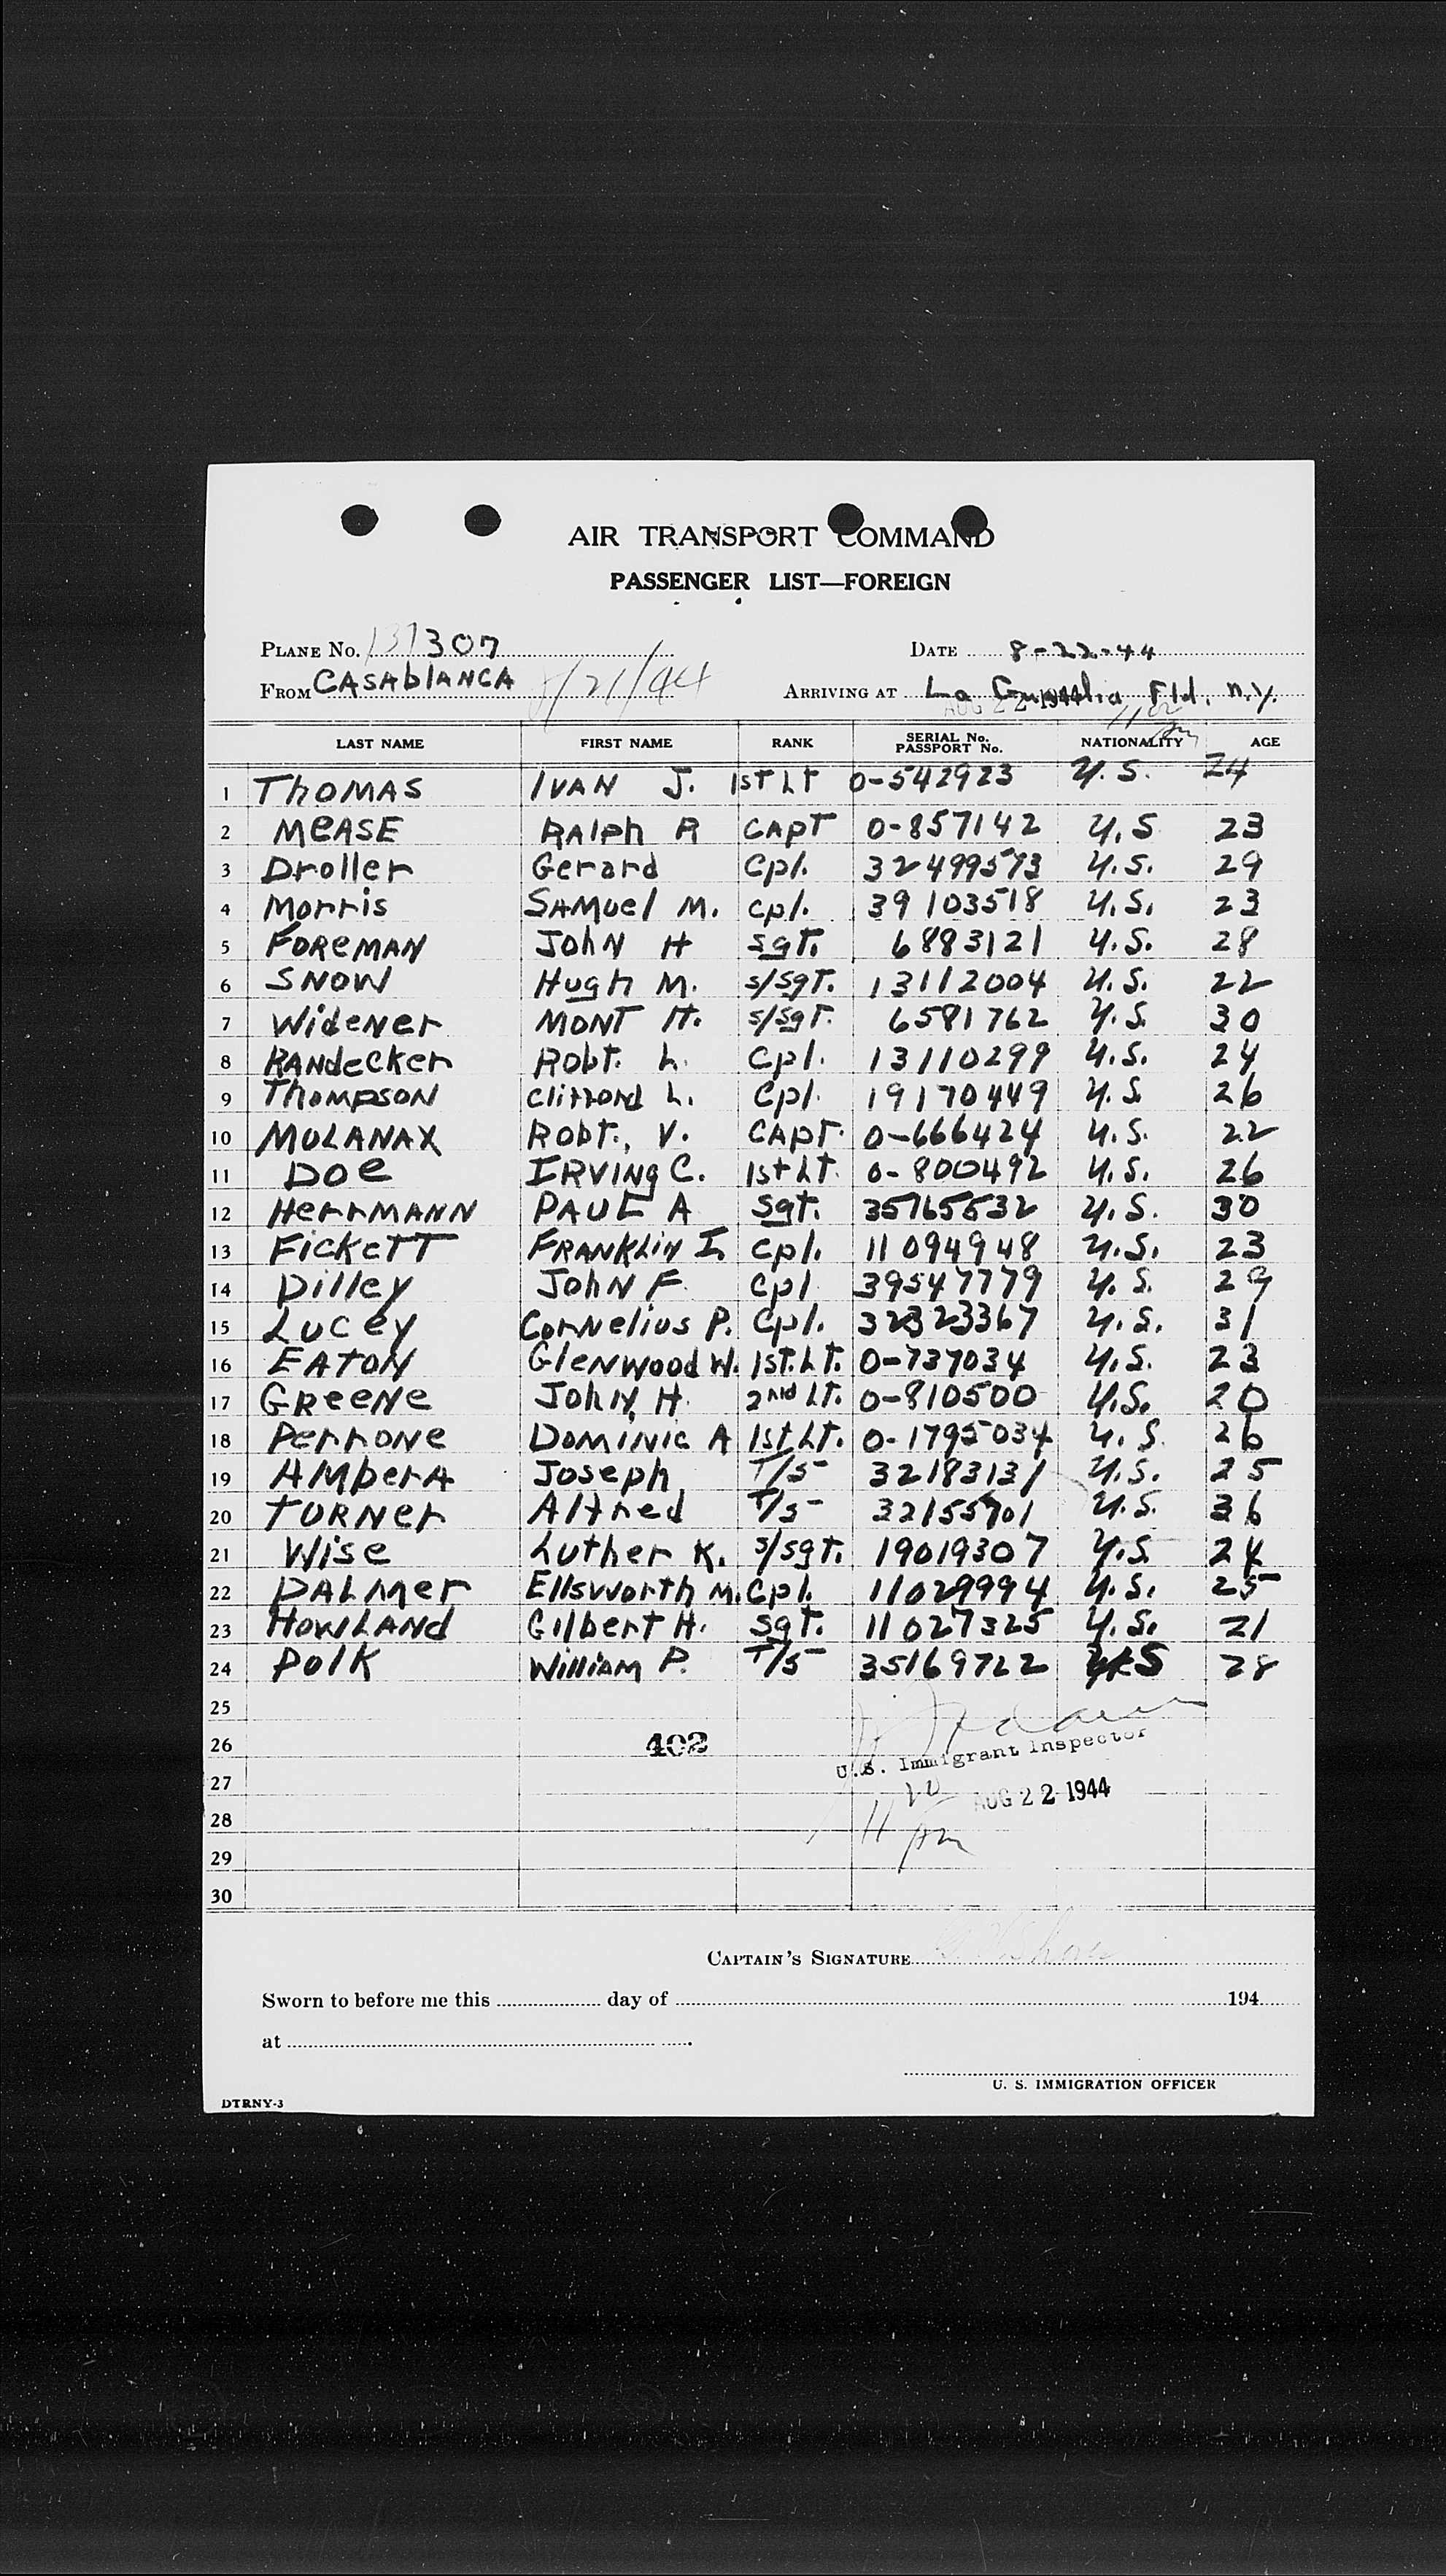 AIR TRANSPORT COMMAND
PASSENGER LIST—FOREIGN
PLANE No. 137307 DATE 8-22-44
FROM CASAblANCA 8/21/44 ARRIVING AT La Guardia Fld. n.y.
AUG 22 1944
LAST NAME FIRST NAME RANK SERIAL No. PASSPORT No. NATIONALITY AGE
1 THOMAS IVAN J. 1ST LT 0-542923 U.S. 24
2 MEASE RAlph R CAPT 0-857142 U.S 23
3 Droller Gerard Cpl. 32499573 U.S. 29
4 Morris SAMuel M. cpl. 39103518 U.S. 23
5 FOREMAN JOhN H sgt. 6883121 U.S. 28
6 SNOW Hugh M. s/sgt. 13112004 U.S. 22
7 WideNer MONT H. s/sgt. 6581762 U.S. 30
8 RANdecker Robt. L. Cpl. 13110299 U.S. 24
9 ThOMPSON Clifford L. Cpl. 19170449 U.S. 26
10 MULANAX Robt., V. CAPT. 0-666424 U.S. 22
11 Doe IRVINg C. 1st Lt. 0-800492 U.S. 26
12 HerrMANN PAUL A Sgt. 35765532 U.S. 30
13 FickeTT FRANKLiN I. Cpl. 11094948 U.S. 23
14 Dilley JOhN F. Cpl 39547779 U.S. 29
15 Lucey CorNelius P. Cpl. 32323367 U.S. 31
16 EATON GleNwood W. 1ST. LT. 0-737034 U.S. 23
17 GReeNe JOhN H. 2nd LT. 0-810500 U.S. 20
18 PerroNe DOMiNic A 1st Lt. 0-1795034 U.S. 26
19 AMberA Joseph T/5 32183131 U.S. 25
20 TURNer Alfred T/5 32155901 U.S. 36
21 Wise Luther K. s/sgt. 19019307 U.S. 24
22 PALMer Ellsworth M. Cpl. 11029994 U.S. 25
23 HowLANd Gilbert H. Sgt. 11027325 U.S. 21
24 Polk WilliAM P. T/5 35169722 U.S 28
25
26 402
U.S. Immigrant Inspector
27
AUG 22 1944
28 11 pm
29
30
CAPTAIN'S SIGNATURE
Sworn to before me this day of 194
at
U. S. IMMIGRATION OFFICER
DTRNY-3